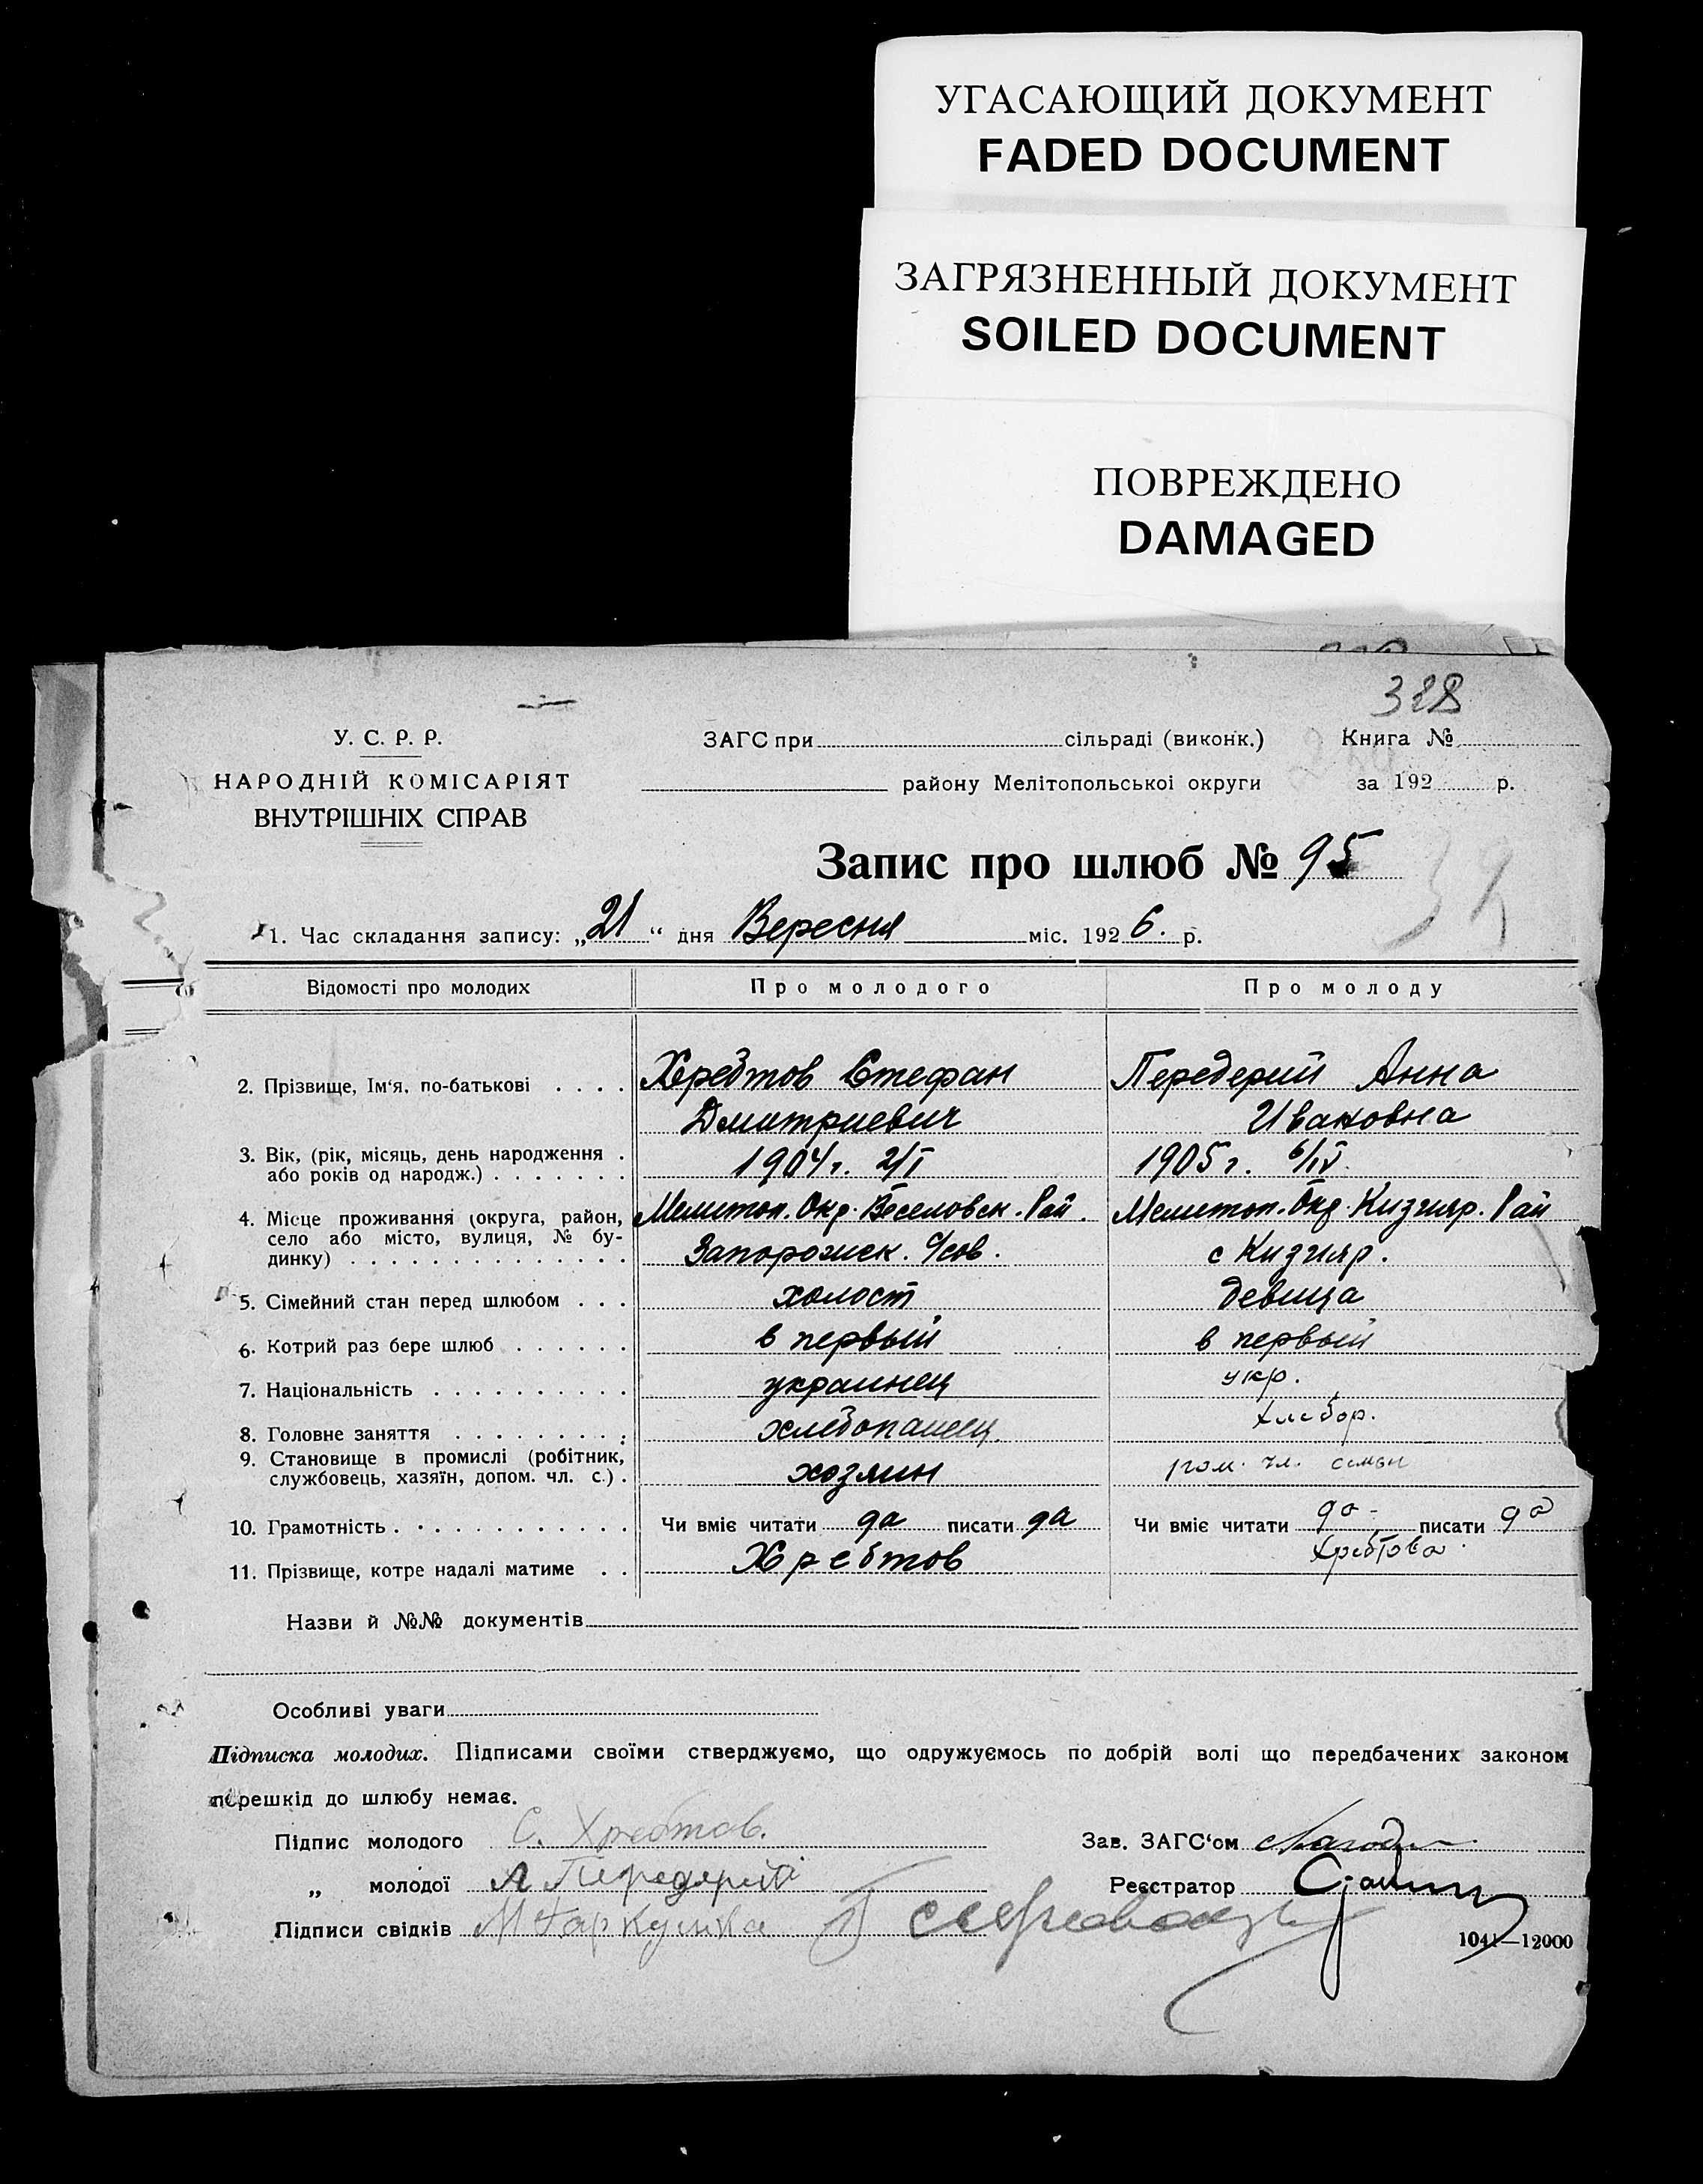 УГАСАЮЩИЙ ДОКУМЕНТ
FADED DOCUMENT
ЗАГРЯЗНЕННЫЙ ДОКУМЕНТ
SOILED DOCUMENT
ПОВРЕЖДЕНО
DAMAGED
328
У. С. Р. Р.
НАРОДНІЙ КОМІСАРІЯТ
ВНУТРІШНІХ СПРАВ
ЗАГС при сільраді (виконк.)
району Мелітопольської округи
Книга №
за 192 р.
Запис про шлюб № 95
32
1. Час складання запису: „21" дня Вересня міс. 1926. р.
Відомості про молодих Про молодого Про молоду
2. Прізвище, Ім'я, по-батькові . . . . Хребтов Стефан Передерий Анна
Дмитриевич Ивановна
3. Вік, (рік, місяць, день народження . 1904 г. 2/I 1905 г. 6/IV.
або років од народж.) . . . . . . .
4. Місце проживання (округа, район, Мелитоп. Окр. Веселовск. Рай. Мелитоп. Окр. Кизияр. Рай
село або місто, вулиця, № бу-
динку) . . . . . . . . . . . . . . Запорожск. с/сов. с Кизияр.
5. Сімейний стан перед шлюбом . . . холост девица
6. Котрий раз бере шлюб . . . . . . в первый в первый
7. Національність . . . . . . . . . . украинец укр.
8. Головне заняття . . . . . . . . . хлебопашец хлебор.
9. Становище в промислі (робітник, хозяин пом. чл. семьи
службовець, хазяїн, допом. чл. с.) .
10. Грамотність . . . . . . . . . . . . Чи вміє читати да писати да Чи вміє читати да - писати да
11. Прізвище, котре надалі матиме . . Хребтов Хребтова
Назви й №№ документів
Особливі уваги
Підписка молодих. Підписами своїми стверджуємо, що одружуємось по добрій волі що передбачених законом
перешкід до шлюбу немає.
Підпис молодого С. Хребтов. Зав. ЗАГС'ом
„ молодої А Передерий Реєстратор
Підписи свідків
1041—12000